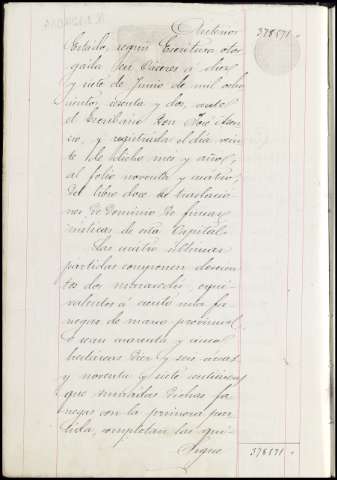 Anterior 378571
Estado, según Escritura otor-
gada en Cáceres á diez
y siete de Junio de mil ocho-
cientos, sesenta y dos, ante
el Escribano Don José
y registrada el dia vein-
te de dicho mes y año,
al folio noventa y cuatro
del libro doce de traslacio-
nes de dominio de fincas
rústicas de esta Capital.
Las cuatro últimas
partidas componen doscien-
tos dos maravedis, equi-
valentes á ciento una fa-
negas de marco provincial,
ó sean
hectáreas diez y seis áreas
y noventa y siete centiáreas
que sumadas dichas fa-
negas con la primera par-
tida, completan las qui-
Sigue 378571